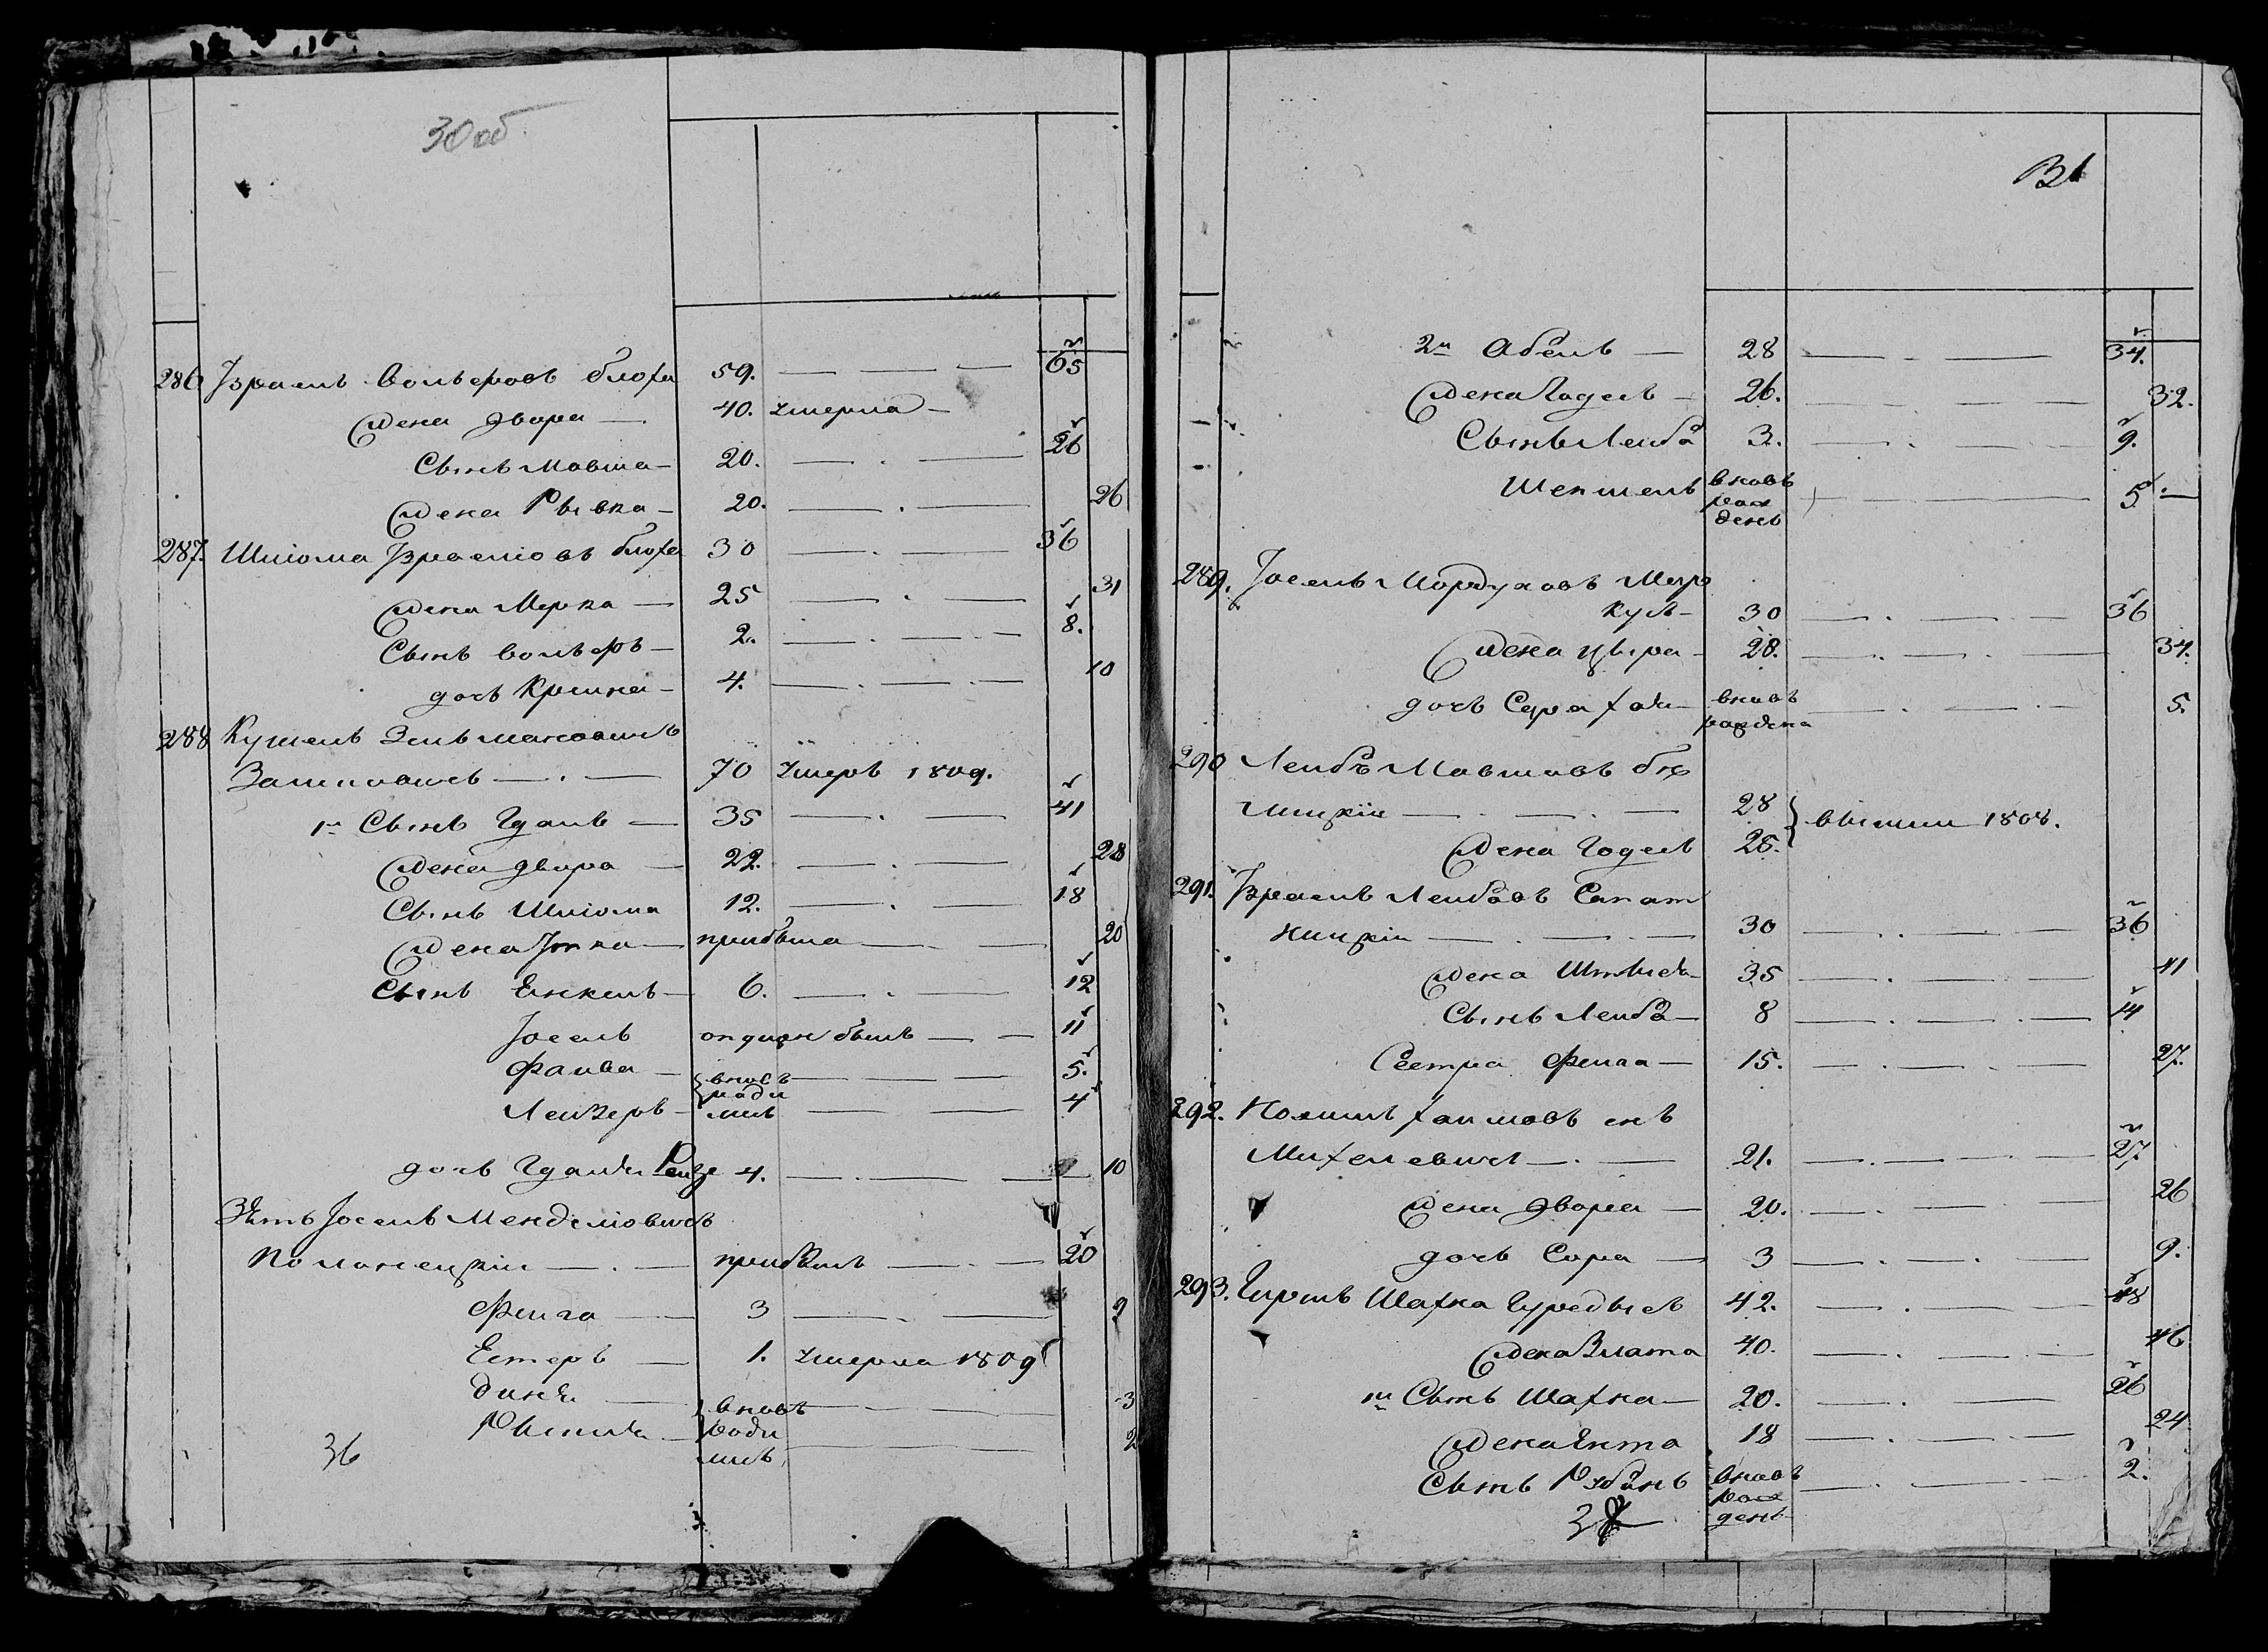 30 об
286 Израель Вольфовъ блоха 59. — — — 65
Жена Двора — 40. умерла —
Сынъ Мовша — 20. — . — 26
Жена Рывка — 20. — . — 26
287. Шліома Израеліовъ блоха 30 — . — 36
Жена Мерка — 25 — . — 31
Сынъ Вольфъ — 2. — . — . — 8.
дочь Крейна — 4. — . — . — 10
288 Кушель Зельмановичъ
— . — 70 умеръ 1809.
1й Сынъ Гдаль — 35 — . — 41
Жена Двора — 22. — . — 28
Сынъ Шліома 12. — . — 18
Жена Итка — прибыла — . — 20
Сынъ Енкель — 6. — . — 12
Іосель — — 11
Файва — внов — — 5.
Лейзеръ — роди лись — — 4
дочь Гдаля 4. — . — — 10
Зять Іосель Менделіовичъ
— . — прибылъ — . — 20
Фейга — 3 — . — 9
Естеръ — 1. умерла 1809
— вновь — . — 3
роди лись — 2
36
31
2й Абель — 28 — . — 34.
Жена Годель — 26. — . — . — 32.
Сынъ Лейба 3. — . — 9.
вновь рож денъ — . — 5. —
289. Іосель Мордуховъ Мер
куль — 30 — . — . — 36
Жена Цыра — 28. — . — . — 34.
дочь Сора Хая — вновь рождена — . — . — 5.
290 Лейба Мовшовъ
— . — . — 28 } вышли 1808.
Жена Годель 25.
291. Израель Лейбовъ Сапот
ницкій — . — . — 30 — . — . — 36
Жена — 35 — . — . — 41
Сынъ Лейба — 8 — . — . — 14
Сестра Фейга — 15. — . — . — 27.
292. Хаимовъ
Михелевичъ — . — 21. — . — . — 27
Жена Двора — 20. — . — . — 26
дочь Сора — 3 — . — . — 9.
293. Гиршъ Шахна Гуревичъ 42. — . — 48
Жена Злата 40. — . — . — 46
1й Сынъ Шахна — 20. — . — 26
Жена Ента 18 — . — . — 24
Сынъ Рубинъ вновь рож денъ — . — . — 2.